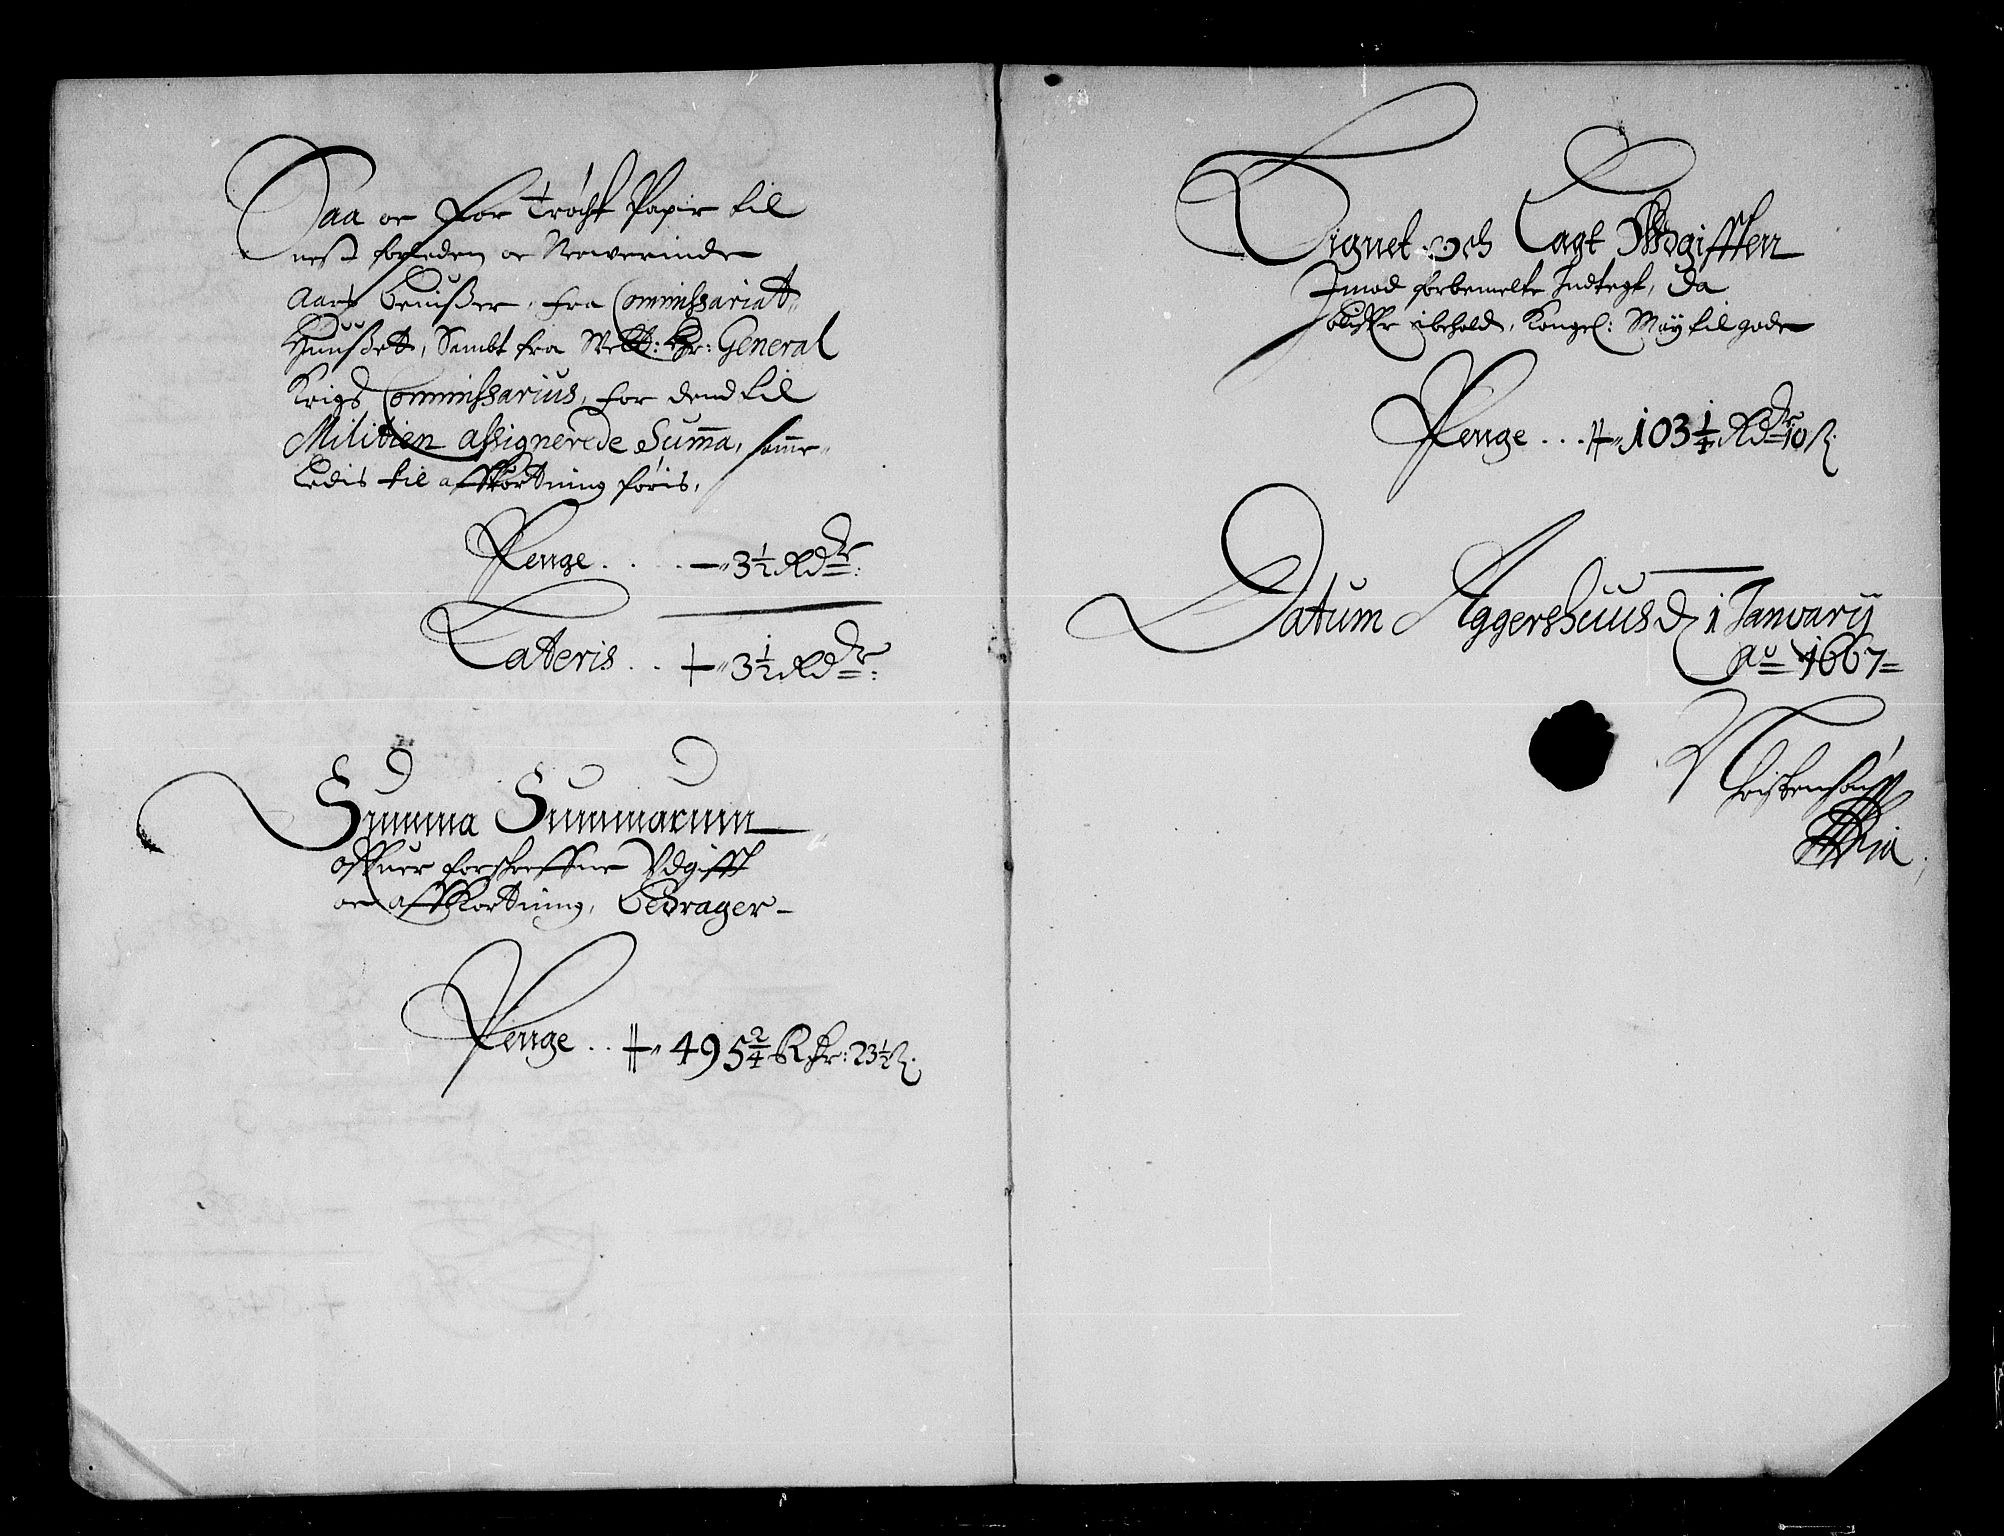 Saa oc for Tröcht Papir til
nest forleden oc Nerverinde
Aars beuißer, fra Commissariat
Huußet, Sambt fra Welb: Hr: General
Krigs Commissarius, for dend til
Militien assignerede Summa, samme-
ledis til affkortning föris,
Penge . . . . — 3½ Rdr:
Lateris . . + 3½ Rdr:
Summa Summarum
offuer forschreffne Udgifft
oc affkortning, bedrager -
Penge . . 495 2/4 Rdr: 23½ ß.
Lignet och Lagt Udgifften
Jmod forbemelte Jndtegt, da
bliffr ibehold, Kongel: May til gode
Penge . . . 103¼ Rdr 10 ß.
Datum Aggershuus d 1 January
Ao 1667